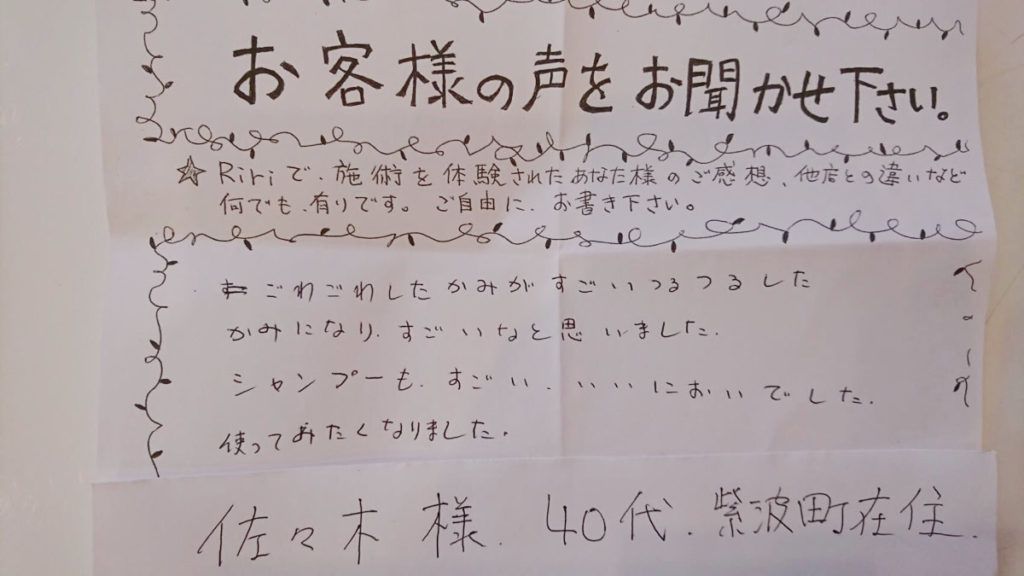 お客様の声をお聞かせ下さい。
☆Ririで、施術を体験されたあなた様のご感想、他店との違いなど
何でも、有りです。ご自由に、お書き下さい。
ごわごわしたかみがすごいつるつるした
かみになり、すごいなと思いました。
シャンプーも、すごい、いいにおいでした。
使ってみたくなりました。
佐々木様、40代、紫波町在住、